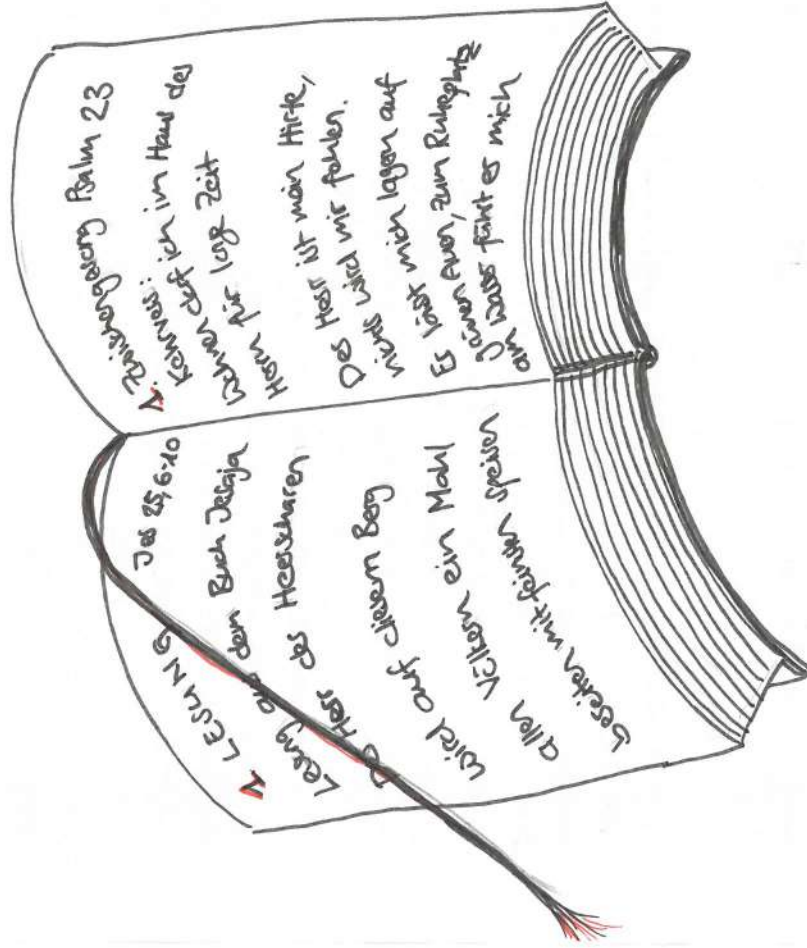 1. LESUNG Jes 25,6-10
Lesung aus dem Buch Jesaja
Der Herr der Heerscharen
wird auf diesem Berg
allen Völkern ein Mahl
bereiten mit feinsten Speisen
1. Zwischengesang Psalm 23
Kehrvers:
Wohnen darf ich im Haus des
Herrn für lange Zeit
Der Herr ist mein Hirte,
nichts wird mir fehlen.
Er lässt mich lagern auf
grünen Auen, zum Ruheplatz
am Wasser führt er mich